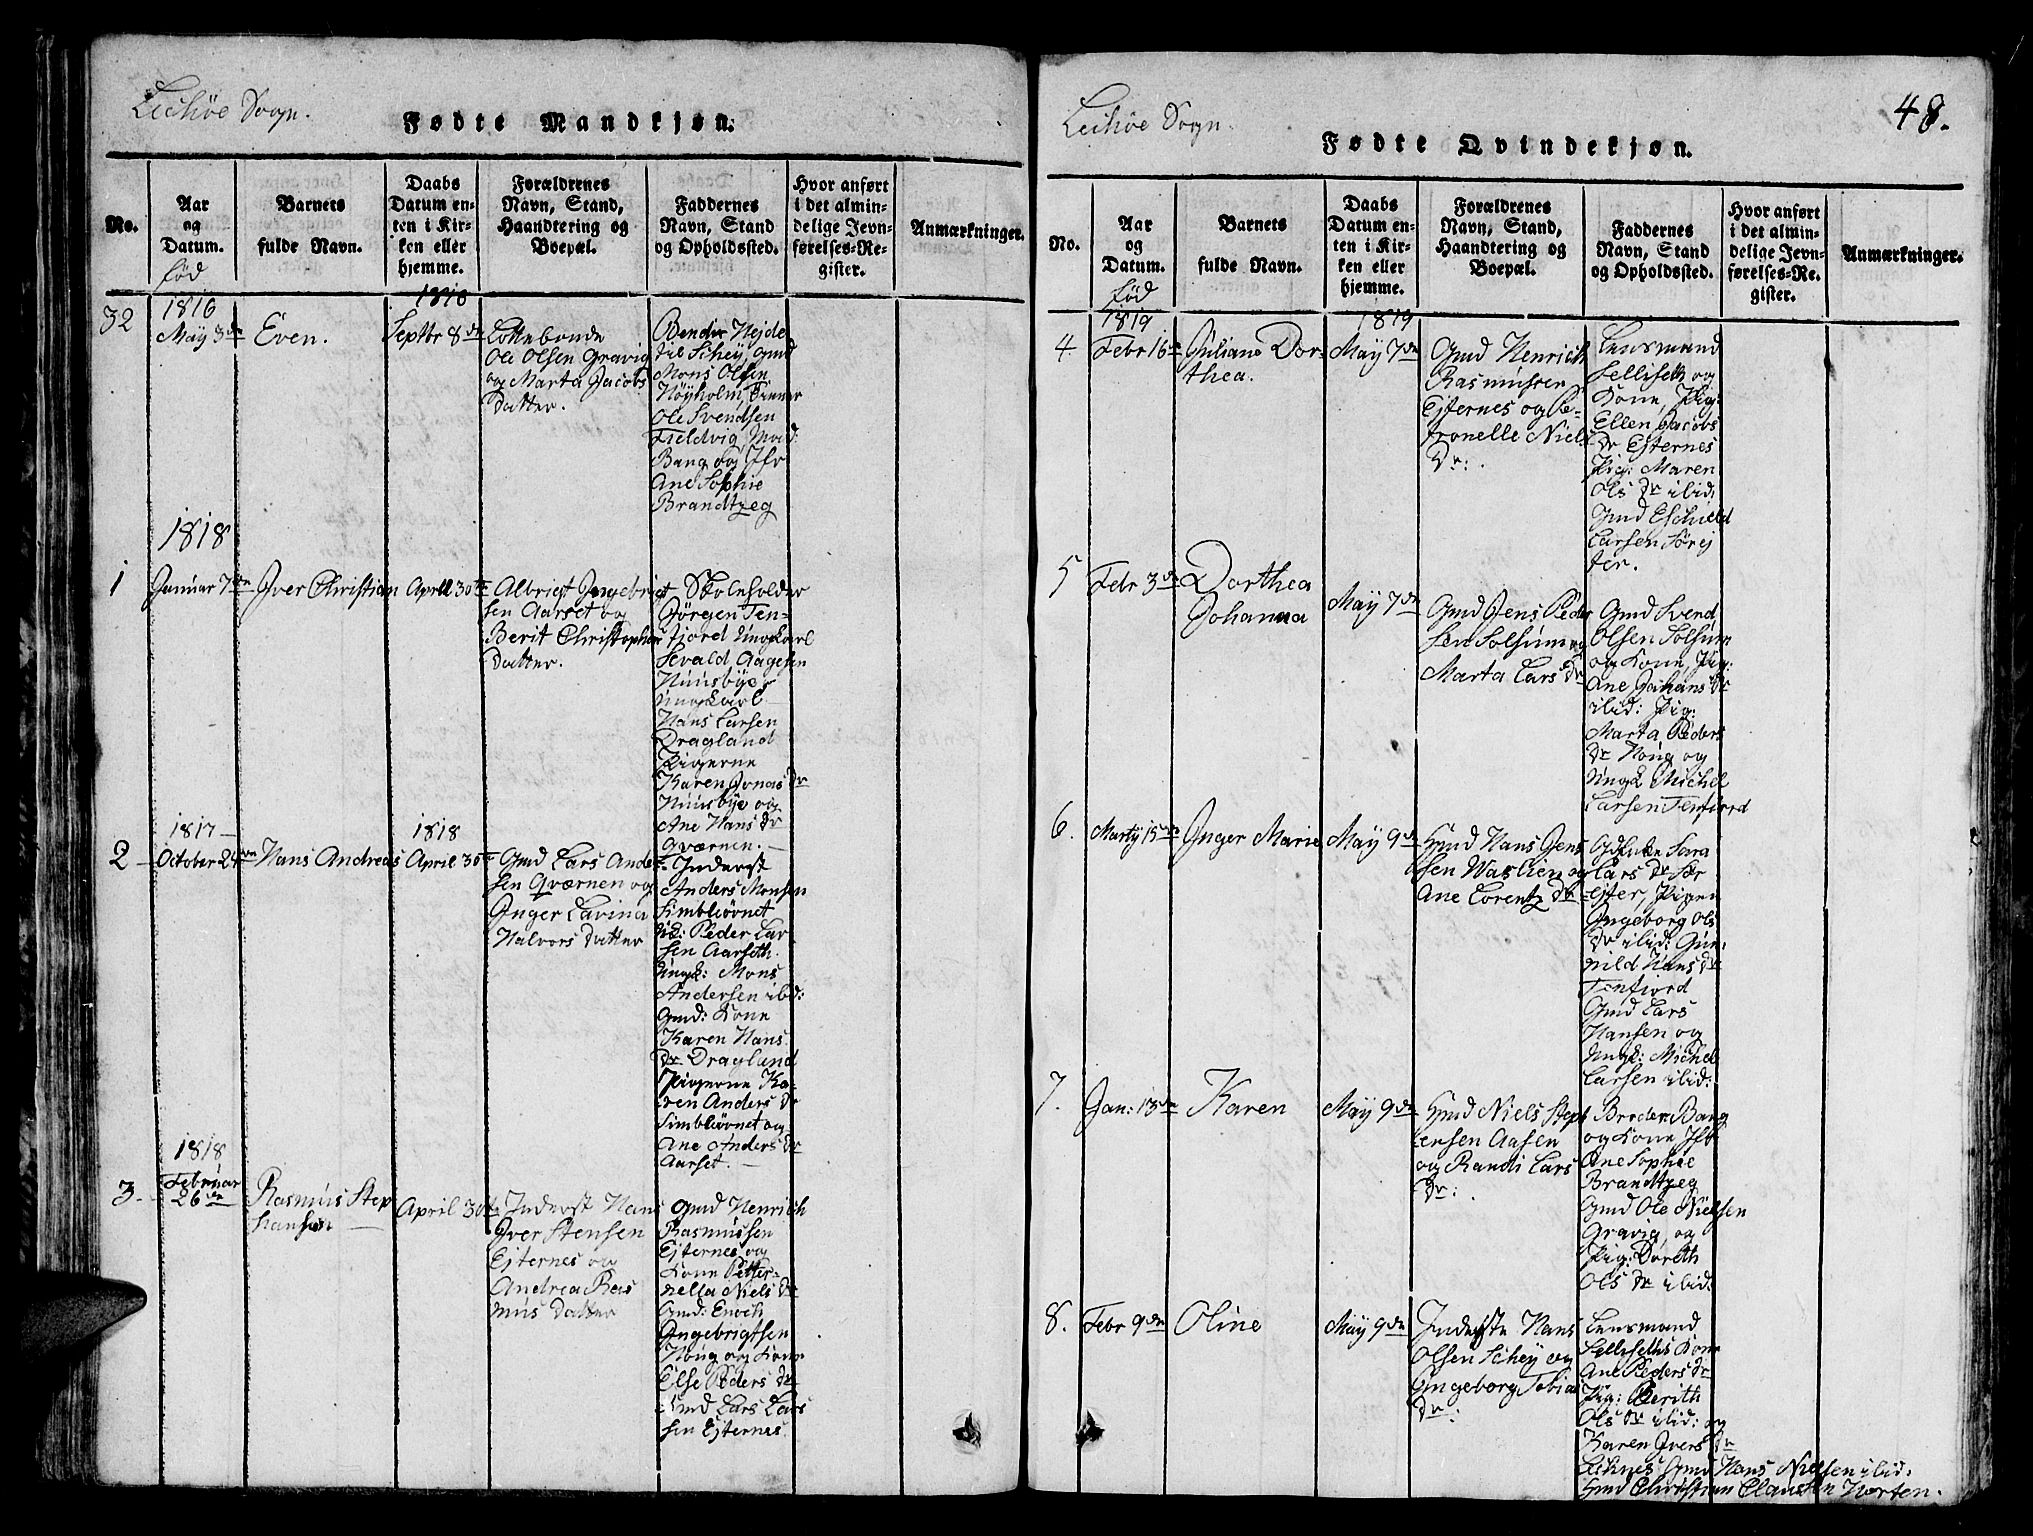 Leckøe Sogn.
Fødte Mandkjøn.
No.
Aar
og
Datum.
fød
Barnets
fulde Navn.
Daabs
Datum en-
ten i Kir-
ken eller
hjemme.
Forældrenes
Navn, Stand,
Haandtering og
Boepæl.
Faddernes
Navn, Stand
og Opholdssted.
Hvor anført
i det almin-
delige Jevn-
førelses-Re-
gister.
Anmærkninger.
32
1816
May 3de
Even.
Septbr 8de
Ole Olsen Gravig
og Marta Jacobs
Datter.
Mons Olsen
Høyholm,
Ole Svendsen
Fieldvig,
Bang og Jfr
Ane Sophie
Brandtzeg
1818
1
Januar 7de
Iver Christian
April 30te
Albrigt Ingebrigt
sen Aarset og
Berit Christophers
Datter.
Skoleholder
Jørgen Ten-
fjord Ungkarl
Sevald Aagesen
Nuusbye
Ungkarl
Hans Larsen
Dragland
Pigerne
Karen Jonas Dr
Nuusbye og
Ane Hans Dr
Qværnen.
2
1817
October 24de
Hans Andreas
1818
April 30te
Gmd Lars Ander
sen Qværnen og
Inger Lavina
Halvors Datter
Inderst
Anders Monsen
Simbleövnet
Peder Lar-
sen Aarseth.
Ungk: Mons
Andersen ibid:
Gmd: Kone
Karen Hans
Dr Dragland
Pigerne Ka-
ren Anders Dr
Simbleövnet og
Ane Anders Dr
Aarset.
3.
1818
Februar
26de
Rasmus Step
hansen
April 30te
Inderst Hans
Iver Stensen
Ejternes og
Andrea Ras
mus Datter
Gmd Henrich
Rasmussen
Ejternes og
Kone Petter-
nella Niels Dr
Gmd: Enoch
Ingebrigtsen
Houg og Kone
Else Peders Dr
Gmd Lars Lars
sen Ejternes.
Leckøe Sogn.
48.
Fødte Qvindekjøn.
No.
Aar
og
Datum.
fød
Barnets
fulde Navn.
Daabs
Datum en-
ten i Kir-
ken eller
hjemme.
Forældrenes
Navn, Stand,
Haandtering og
Boepæl.
Faddernes
Navn, Stand
og Opholdssted.
Hvor anført
i det almin-
delige Jevn-
førelses-Re-
gister.
Anmærkninger.
4.
1819
Febr 16de
Juliane Dor-
thea.
1819
May 7de
Gmd Henrich
Rasmussen
Ejternes og Pe-
tronelle Niels
Dr:
Lensmand
Selliseth og
Kone, Pig:
Ellen Jacobs
Dr Ejternes
Pig: Maren
Ols Dr ibid:
Gmd Eschild
Larsen Sørej
ter.
5
Febr 3de
Dorthea
Johanna
May 7de
Gmd Jens Peder
sen Solsum og
Marta Lars Dr
Gmd Svend
Olsen Solsum
og Kone, Pig:
Ane Johans Dr
ibid: Pig:
Marta Peders
Dr Houg og
Ungk Michel
Larsen Tenfiord
6.
Marty 15de
Inger Marie
May 9de
Gmd Hans Jens
sen Waslien og
Ane Lorentz Dr
Sara
Lars Dr Sør
Ejter, Pigen
Ingeborg Ols
Dr ibid: Gun-
nild Hans Dr
Tenfiord
Gmd Lars
Hansen og
Ungk: Michel
Larsen ibid:
7.
Jan: 13de
Karen
May 9de
Gmd Niels Steph
ensen Aasen
og Randi Lars
Dr:
Bang
og Kone Jfr
Ane Sophie
Brandtzeg
Gmd Ole Nielsen
Gravig, og
Pig: Doreth
Ols Dr ibid.
8.
Febr 9de
Oline
May 9de
Inderste Hans
Olsen Schey og
Ingeborg Tobias
Dr:
Lensmand
Sellisethis Kone
Ane Peders Dr
Pig: Berith
Ols Dr ibid: og
Karen Ivers Dr
Leknes Gmd Hans Nielsen ibid:
Gmd Christian Clausen Horten.